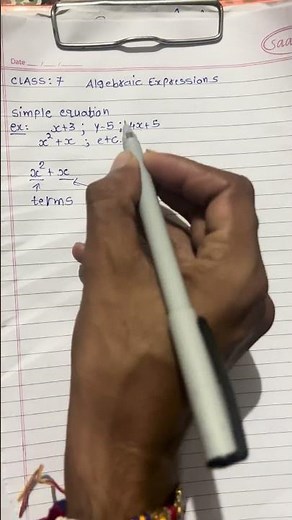 Saa
Date
CLASS: 7 Algebraic Expressions
Simple equation
ex: x+3 ; y-5 ; 4x+5
x² + x ; etc.
x² + x
terms